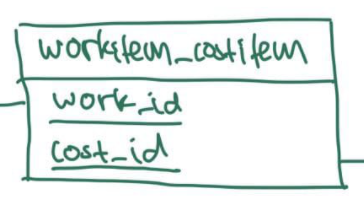 workitem_costitem
work_id
cost_id